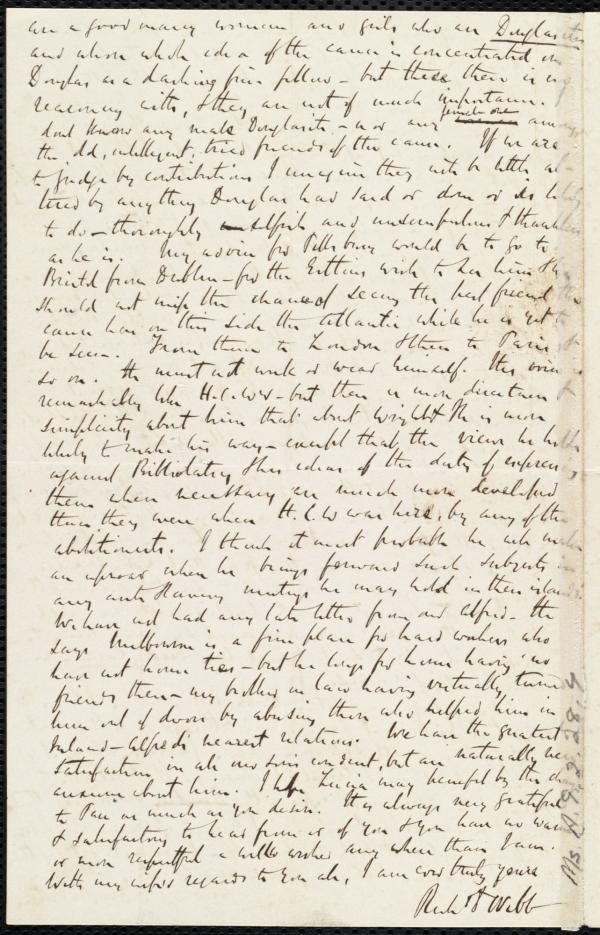 are a good many women and girls who are Douglasites
and whose whole idea of the cause is concentrated in
Douglas as a dashing fine fellow - but these there is no
reasoning with, & they are not of much importance. I
dont know any male Douglasite - nor any female one among
the old, intelligent, tried friends of the cause. If we are
to judge by contributions I imagine they will be little al-
tered by anything Douglas has said or done or is likely
to do - thoroughly selfish and unscrupulous & thankless
as he is. My advice for Pillsbury would be to go to
Bristol from Dublin - for the Estlins wish to see him & he
should not miss the chance of seeing the best friend the
cause has on this side the Atlantic while he is yet to
be seen. From them to London & then to Paris &
so on. He must not work or wear himself. His voice is
remarkably like H.C.W's - but there is more directness &
simplicity about him than about Wright & he is more
likely to make his way - except that the views he holds
against Bibliolatry & his ideas of the duty of expressing
them when necessary are much more developed
than they were when H.C.W was here, by any of the
abolitionists. I think it most probable he will make
an uproar when he brings forward such subjects in
any anti slavery meetings he may hold in these islands.
We have not had any late letter from our Alfred - He
says Melbourne is a fine place for hard workers who
have not home ties - but he longs for home having no
friends there - my brother in law having virtually turned
him out of doors by abusing those who helped him in
Ireland - Alfred's nearest relations. We have the greatest
satisfaction in all our son's conduct, but are naturally very
anxious about him. I hope Lucia may benefit by the
to Pau as much as you desire. It is always very grateful
& satisfactory to hear from or of you & you have no warmer
or more respectful a well wisher any where than I am.
With my wife's regards to you all, I am ever truly yours
Richd D Webb
Ms. A.9.2.28.4